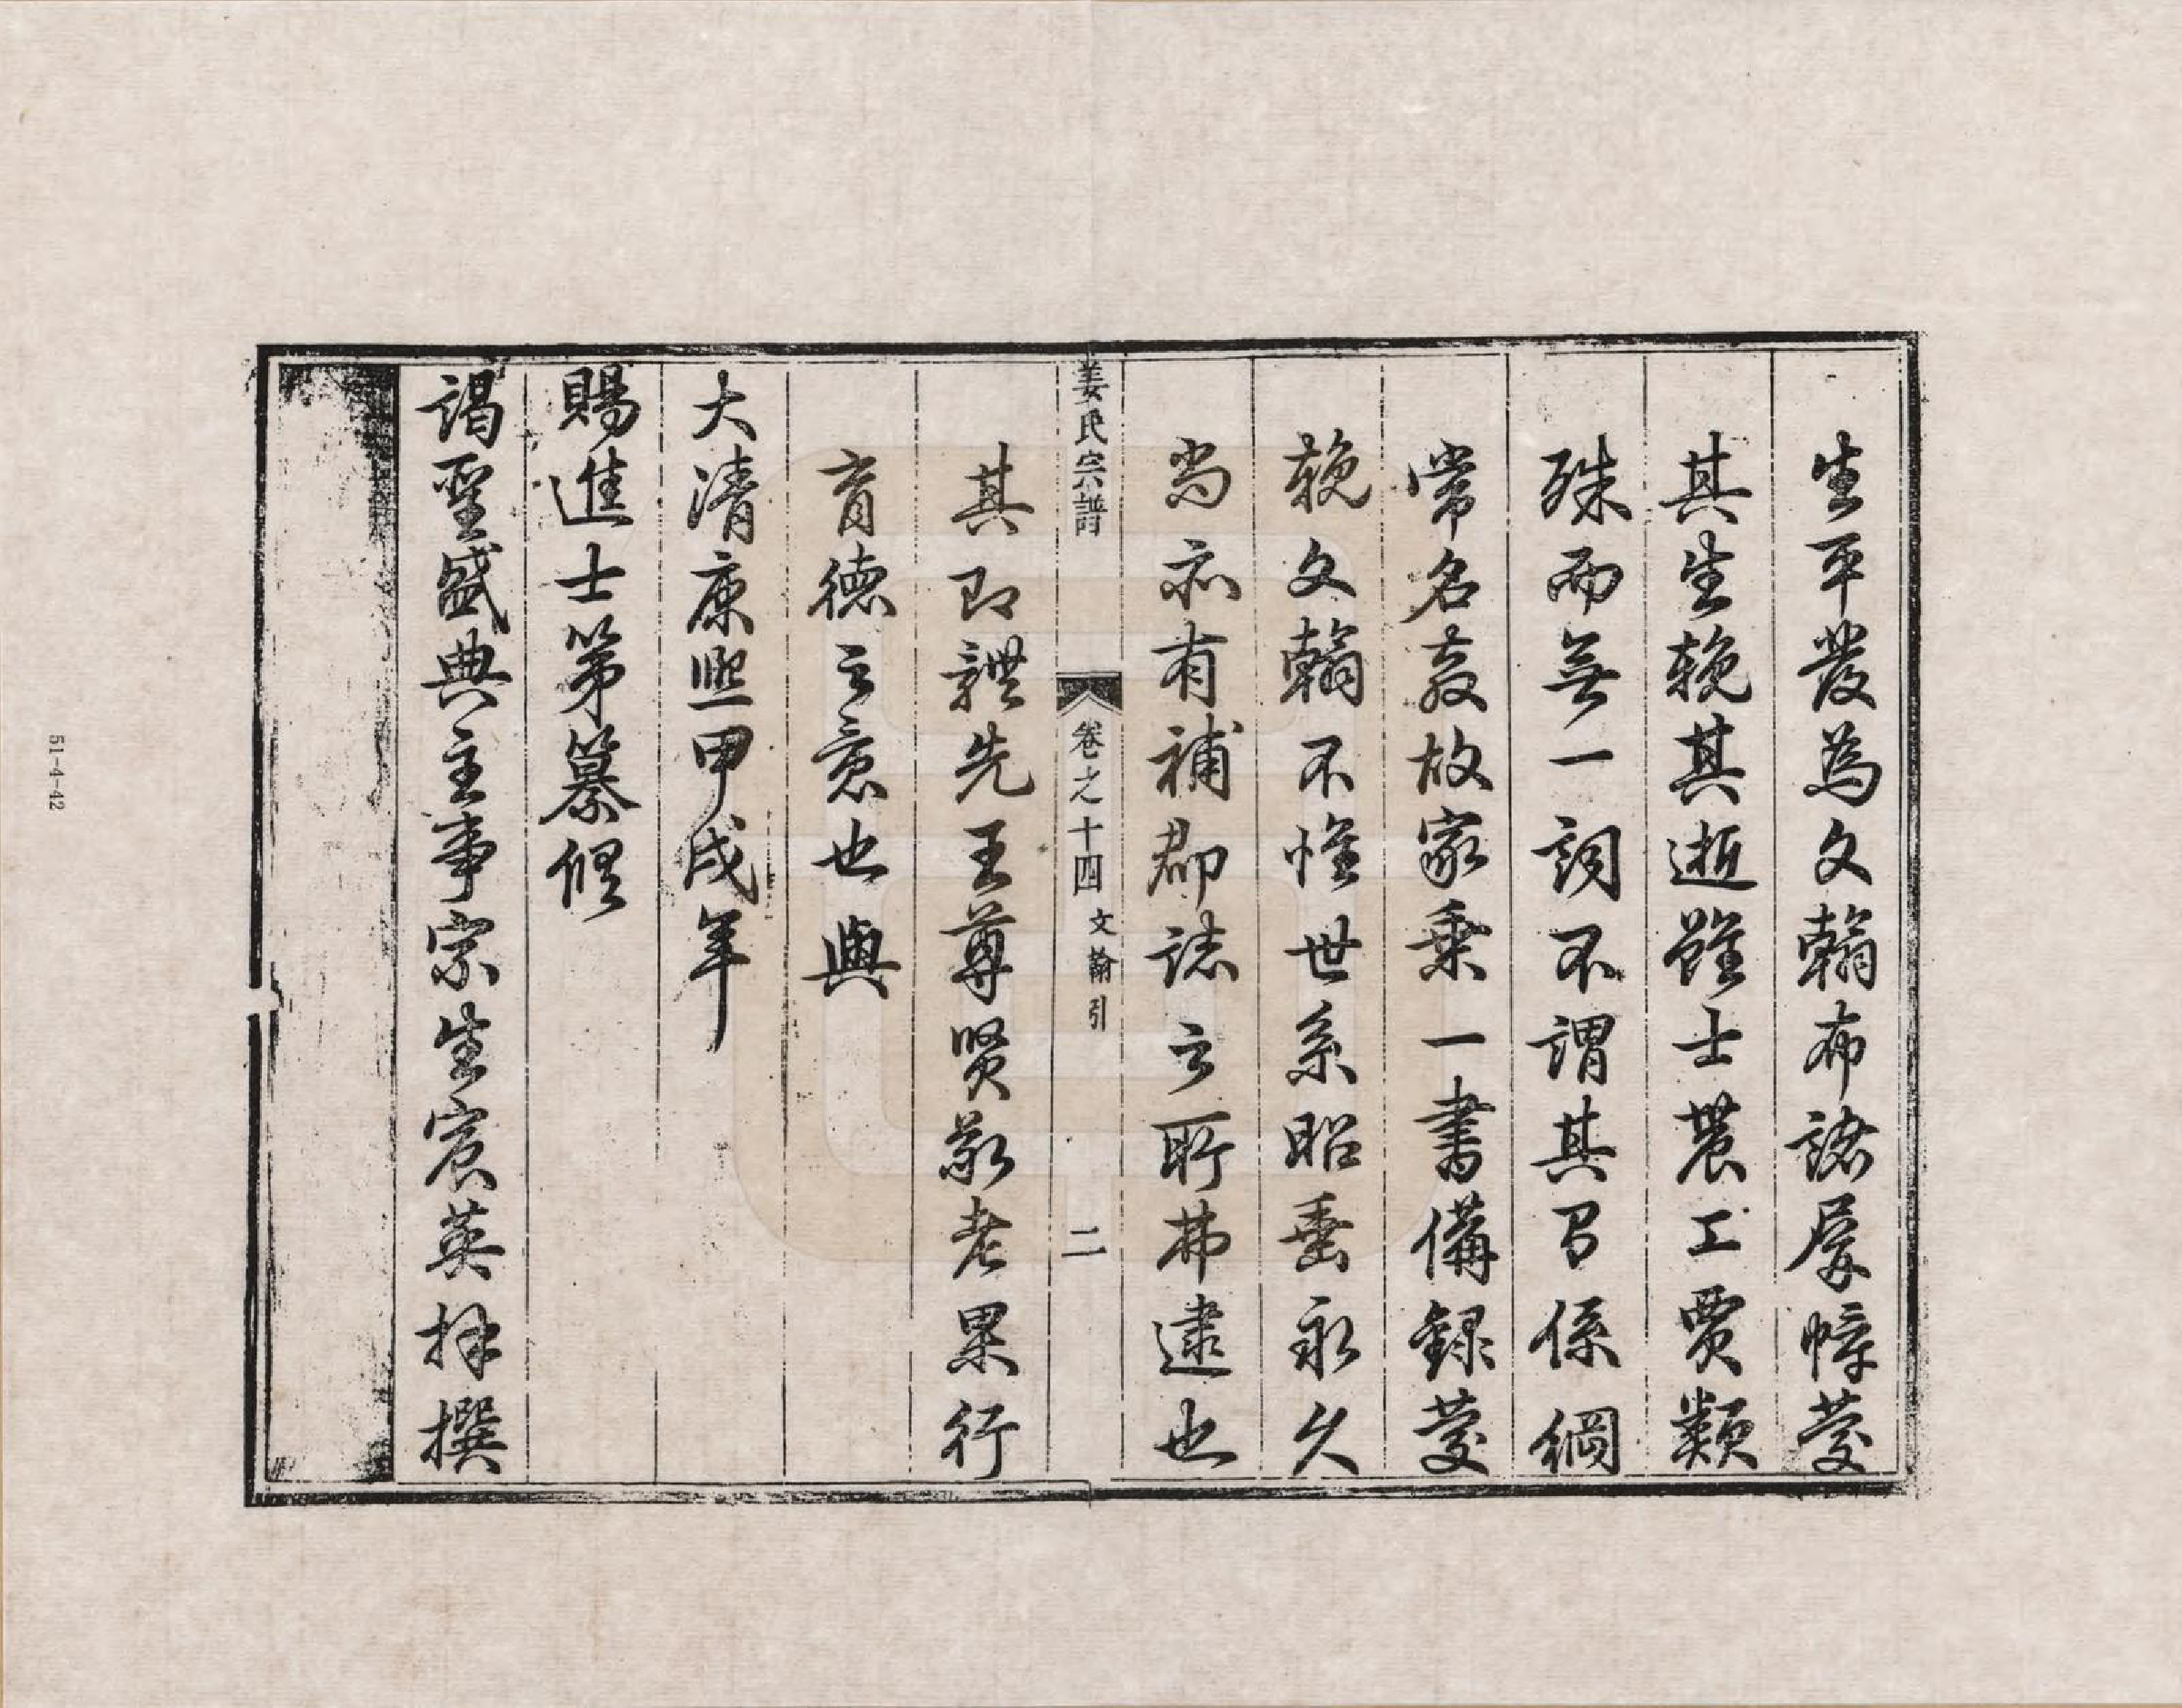 生平發為文翰布諸屏幛慶
其生輓其逝雖士農工賈類
殊而無一詞不謂其㠯係綱
常名教故家乘一書備録慶
輓文翰不惟世系昭垂永久
尚亦有補郡誌之所弗逮也
姜氏宗譜 卷之十四 文翰引 二
其即體先王尊賢敬老果行
育德之意也與
大清康熙甲戌年
賜進士第纂修
謁聖盛典主事宗生宸英拜撰
51-4-42